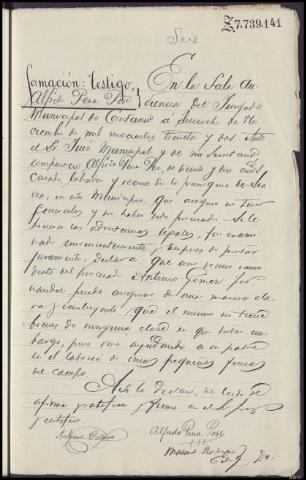 Z.7.739.141
Seis
Testigo,
Alfredo Pena Pose
En la Sala Au-
diencia del Juzgado
Municipal de
de mil novecientos treinta y dos ante
el Sr. Juez Municipal y de mi Secretario
comparece Alfredo Pena Pose, de treinta y dos años
casado, labrador y vecino de la parroquia de
en este Municipio, que asegura no tener
generales y no haber sido procesado. Se le
hicieron las advertencias legales, fue exami-
nado convenientemente y despues de prestar
juramento, declara: Que como vecino inme-
diato del procesado Antonio Gomez
puede asegurar de una manera cla-
ra y concluyente que el mismo no tiene
bienes de ninguna clase en que trabar em-
bargo, pues vive ayudando a su padre
en el laboreo de unas pequeñas fincas
de campo.
Asi lo declara, de leido se
afirma ratifica y firma con el Sr. Juez
y certifico.
Antonio
Alfredo Pena Pose
Manuel